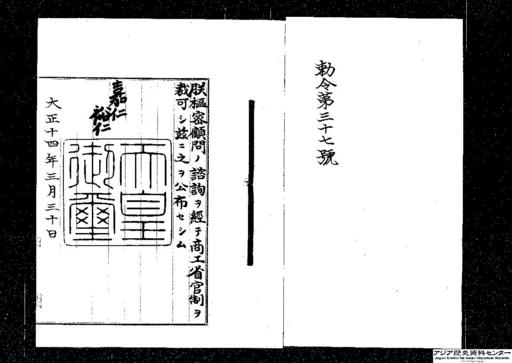 勅令第三十七號
朕樞密顧問ノ諮詢ヲ經テ商工省官制ヲ
裁可シ茲ニ之ヲ公布セシム
嘉仁
裕仁
天皇
御璽
大正十四年三月三十日
アジア歴史資料センター
Japan Center for Asian Historical Records